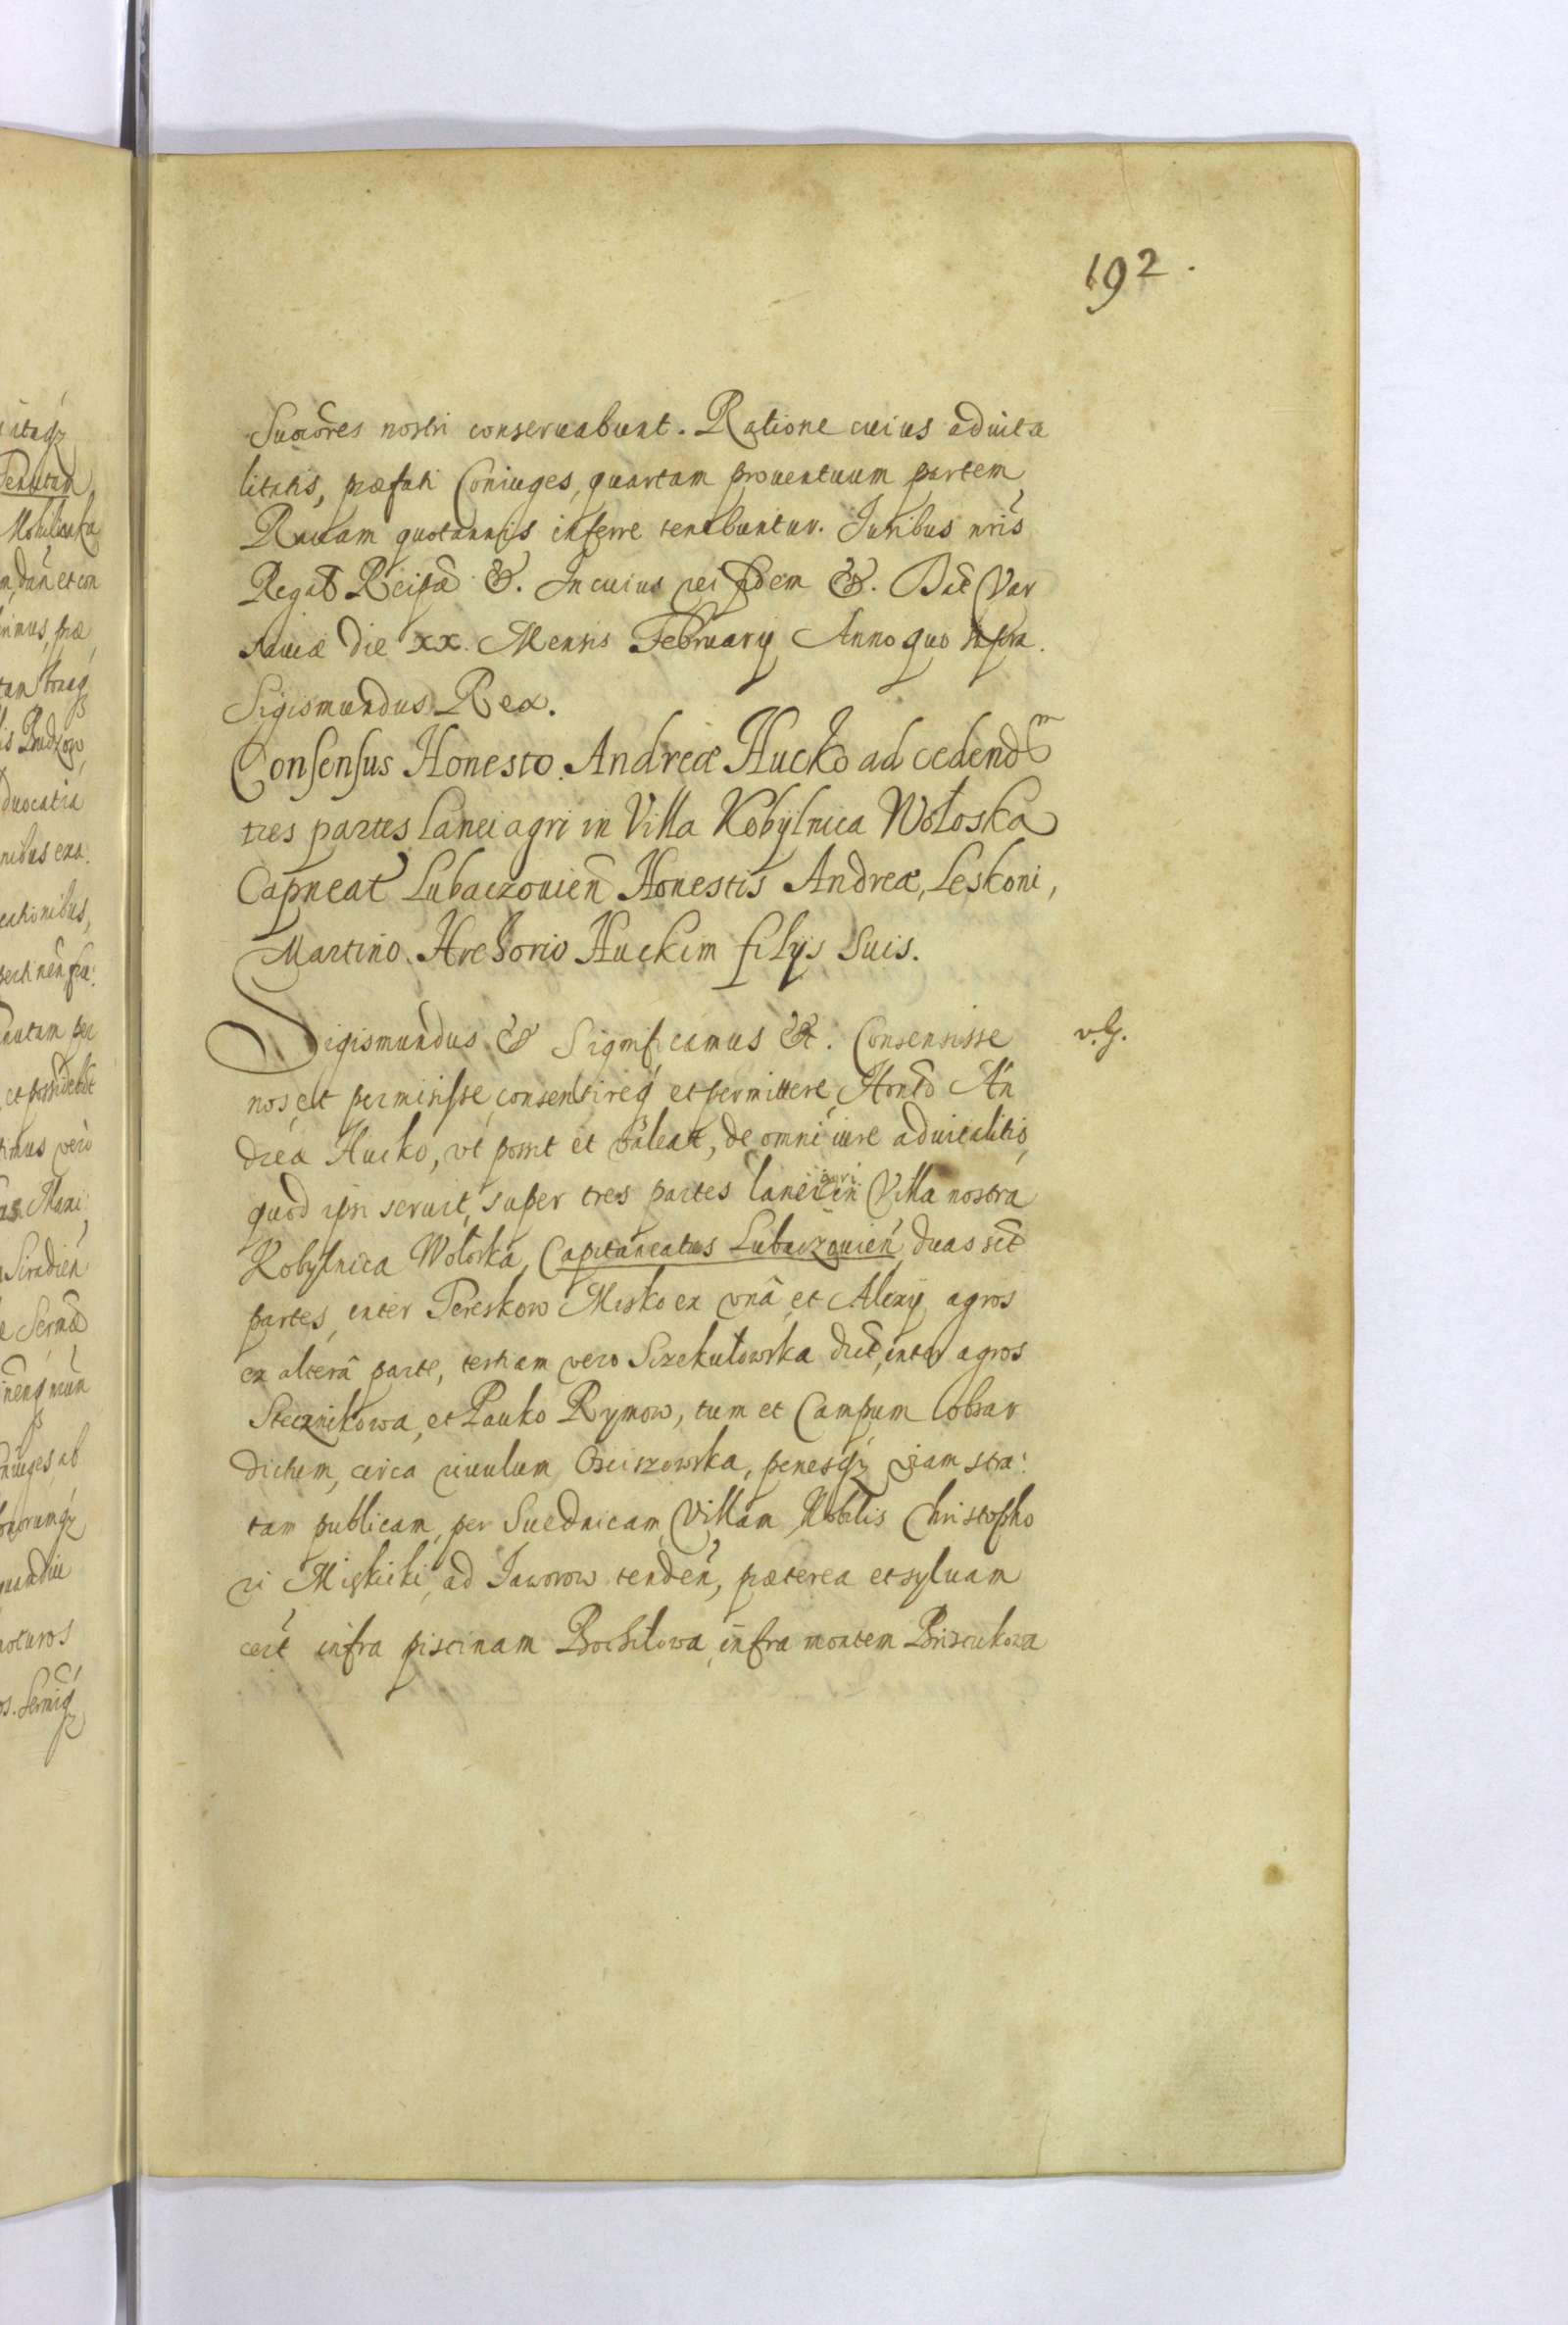 192.
Succōres nostri conseruabunt. Ratione cuius aduita
litatis, præfati Coniuges, quartam prouentuum partem
Rauam quotannis inferre tenebuntur. Iuribus nr̃is
Regal Reipã &. In cuius rei fidem &. Dat̃ Var
sauiæ die xx. Mensis February Anno quo supra.
Sigismundus Rex.
Consensus Honesto Andreæ Hucko ad cedendm
tres partes Lanei agri in Villa Kobylnica Wołoska
Capneat Lubaczouien̄ Honestis Andreæ, Leskoni,
Martino. Hrehorio Huckim filijs suis.
Sigismundus & Significamus &. Consensisse
v. G.
nos, et permisisse, consentireq́ et permittere, Honto An
dreæ Hucko, vt possit et valeat, de omni iure aduitalitio,
quod ipsi seruit, super tres partes lanei agri in Villa nostra
Kobylnica Wołoska, Capitaneatus Lubaczouien̄, duas sct̃
partes, inter Pereskow Misko ex vnâ, et Alexy agros
ex alterâ parte, tertiam vero Szekułowska dict̃, inter agros
Stecznikowa, et Pauko Rymow, tum et Campum Lobsar
dichem, circa riuulum Osciszowska, penesq́ viam stra:
tam publicam, per Suednicam, Villam Nobilis Christopho
ri Miękicki, ad Iaworow tenden̄, præterea et syluam
cert̃ infra piscinam Bochiłowa, infra montem Brizcukowa